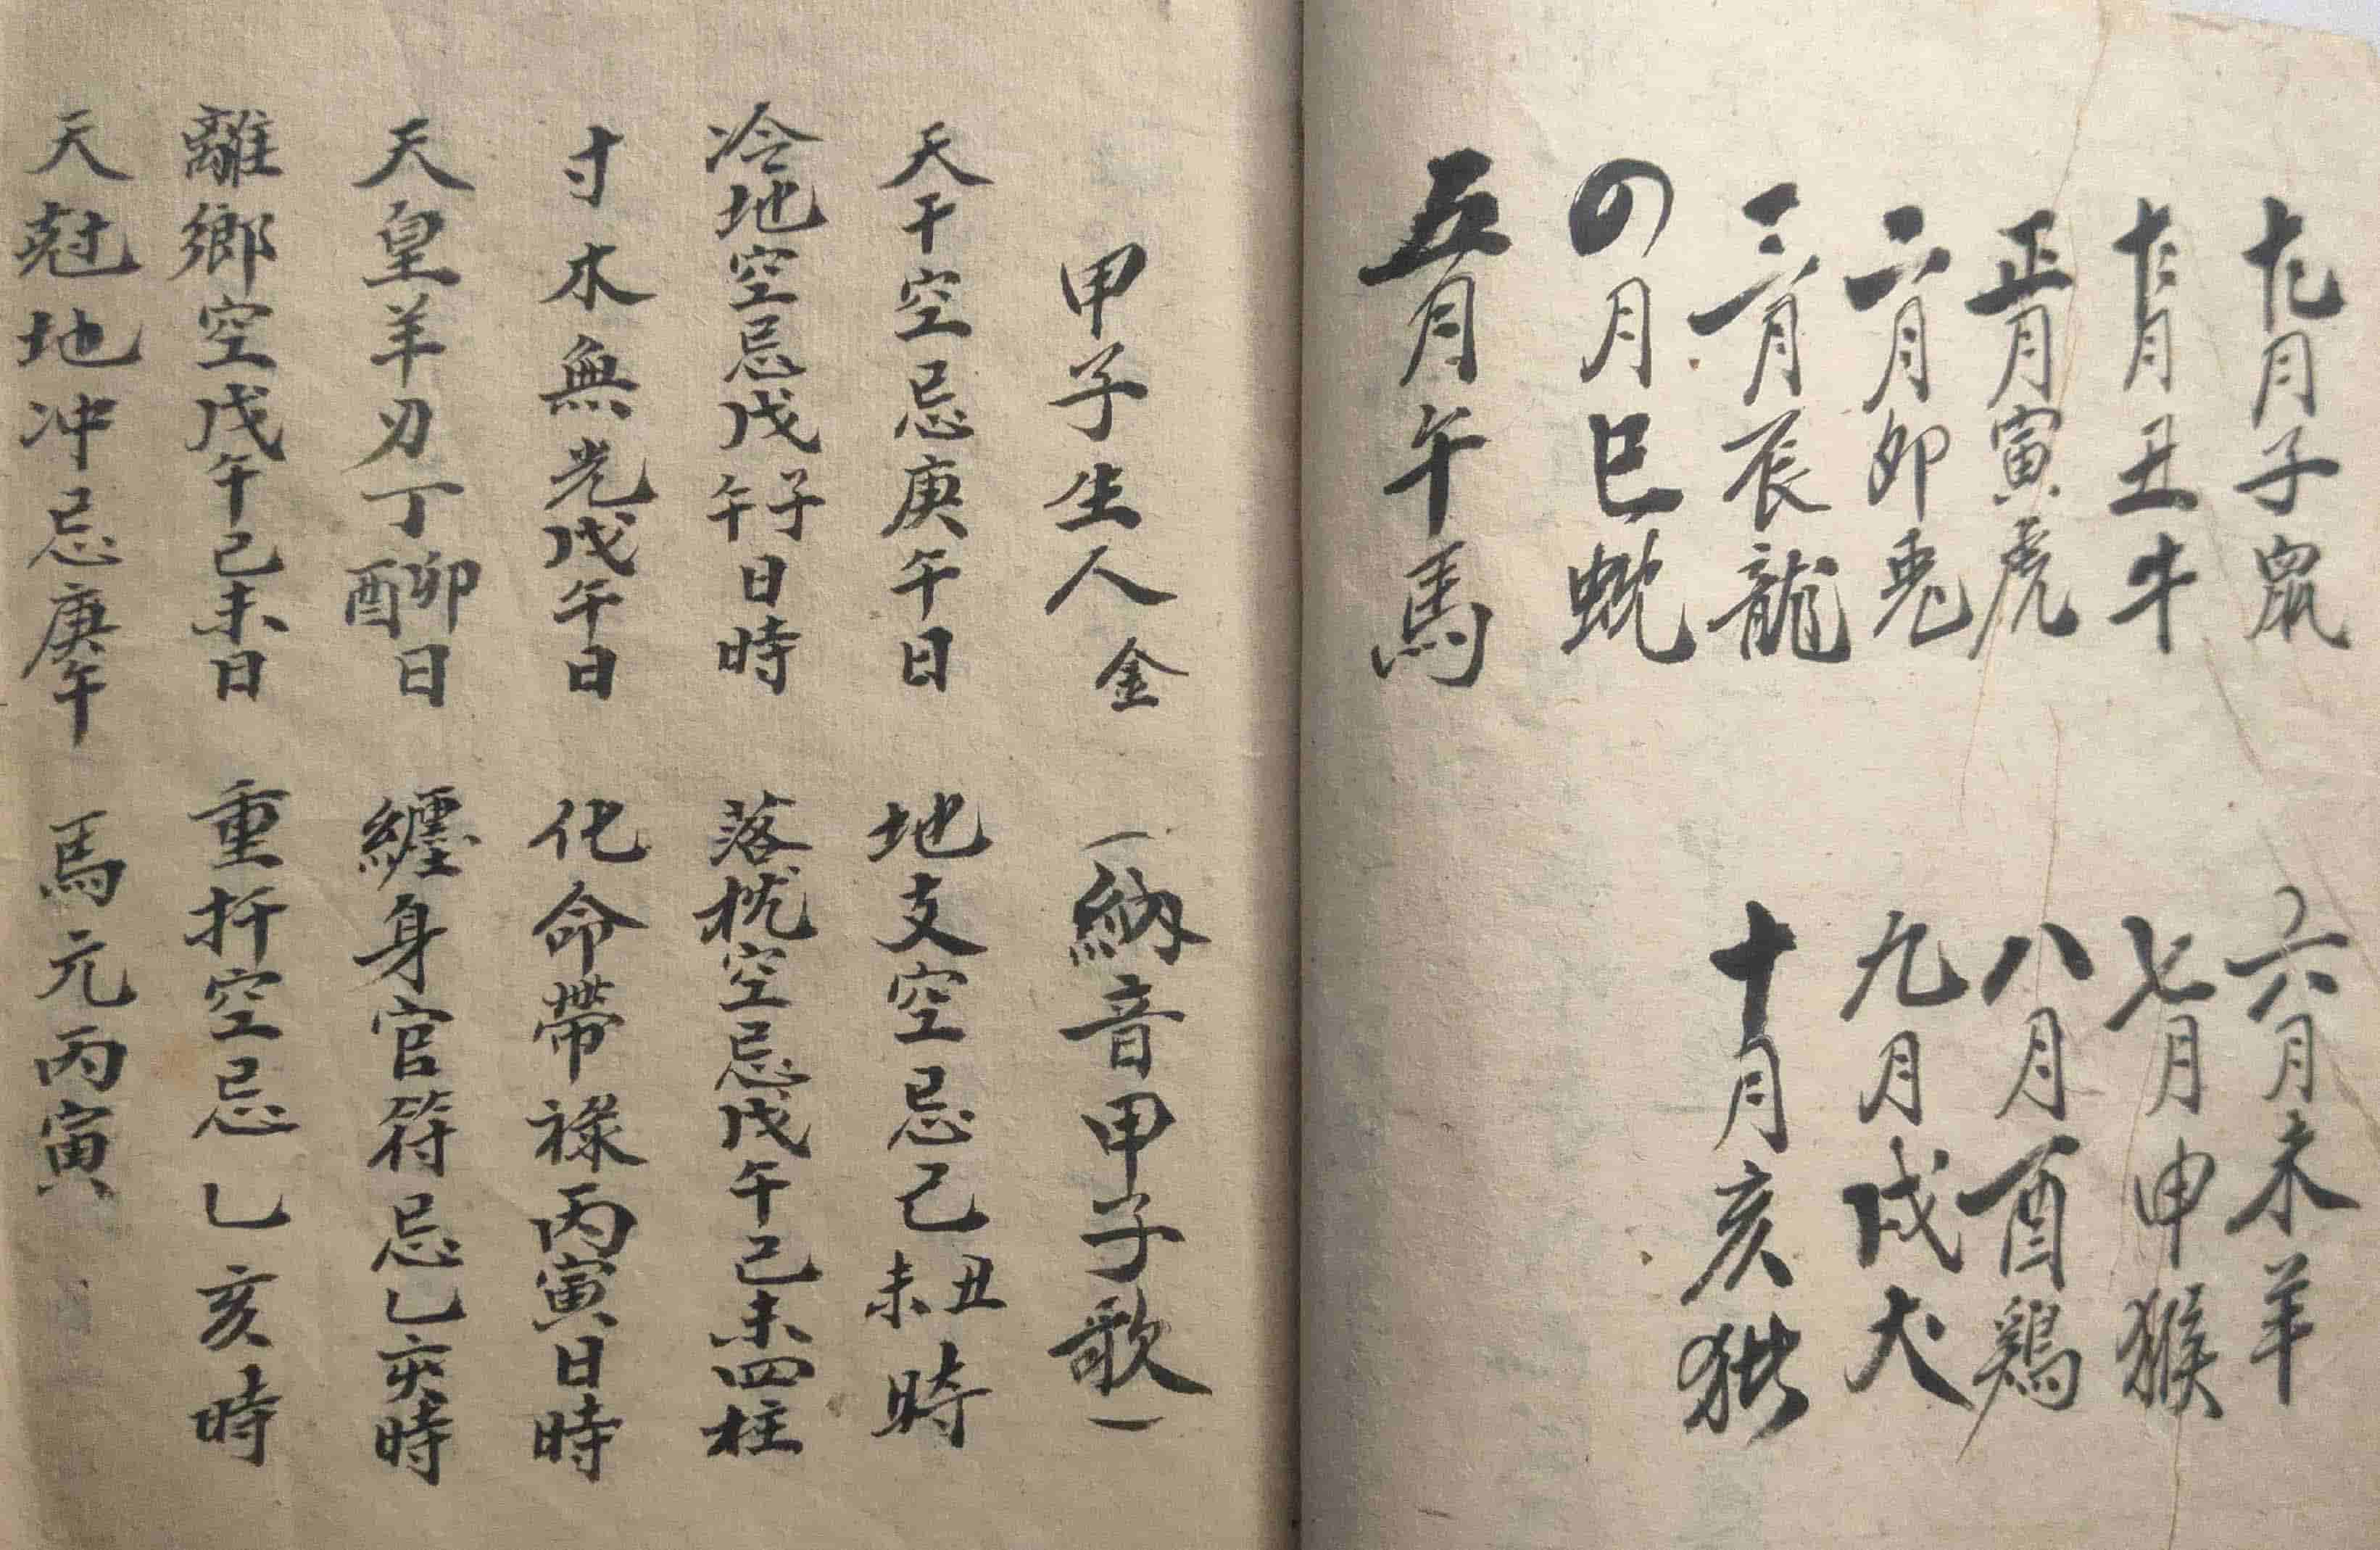 十一月子鼠
十二月丑牛
正月寅虎
二月卯兎
三月辰龍
四月巳蛇
五月午馬
六月未羊
七月申猴
八月酉鷄
九月戌犬
十月亥猪
甲子生人 金 （納音甲子歌）
天干空忌庚午日 地支空忌己丑未時
冷地空忌戊子午日時 落枕空忌戊午己未四柱
寸木無光戊午日 化命帶祿丙寅日時
天皇羊刃丁卯酉日 纏身官符忌乙亥時
離鄉空戊午己未日 重折空忌乙亥時
天尅地冲忌庚午 馬元丙寅